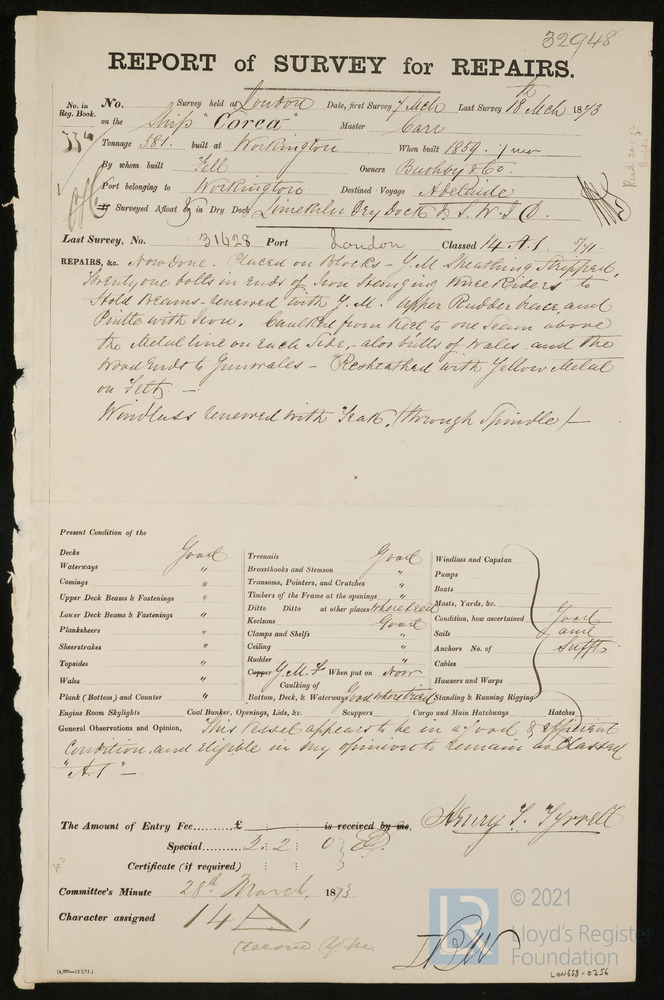 32948
REPORT of SURVEY for REPAIRS.
No. in Reg. Book. No. Survey held at London Date, first Survey 7 Mch Last Survey 18th Mch 1873
on the Ship "Corea" Master Carr
Tonnage 581. built at Workington When built 1859.
By whom built Fell Owners Bushby & Co.
Port belonging to Workington Destined Voyage Adelaide
If Surveyed Afloat or in Dry Dock Limekiln Dry Dock & S. W. I D.
Last Survey, No. 31628 Port London Classed 14 A.1.
REPAIRS, &c. Now done - Placed on Blocks - Y.M. Sheathing Stripped,
Twenty one bolts in ends of Iron Hanging Knee Riders to
Hold Beams - renewed with Y.M. Upper Rudder brace, and
Pintle with Iron. Caulked from Keel to one seam above
the Metal line on each side, - also butts of Wales and the
Wood Ends to Gunwales - Resheathed with Yellow Metal
on Felt, -
Windlass renewed with Teak, (through Spindle) -
Present Condition of the
Decks Good
Waterways "
Comings "
Upper Deck Beams & Fastenings "
Lower Deck Beams & Fastenings "
Planksheers "
Sheerstrakes "
Topsides "
Wales "
Plank (Bottom) and Counter "
Treenails Good
Breasthooks and Stemson "
Transoms, Pointers, and Crutches "
Timbers of the Frame at the openings "
Ditto Ditto at other places where tried
Keelsons Good
Clamps and Shelfs "
Ceiling "
Rudder "
Copper Y.M.F When put on Now
Caulking of
Bottom, Deck, & Waterways Good where tried
Windlass and Capstan
Pumps
Boats
Masts, Yards, &c.
Condition, how ascertained Good
Sails and
Anchors No. of Sufft
Cables
Hawsers and Warps
Standing & Running Rigging
Engine Room Skylights Coal Bunker, Openings, Lids, &c. Scuppers Cargo and Main Hatchways Hatches
General Observations and Opinion, This Vessel appears to be in a good & efficient
Condition, and eligible in my opinion to remain as Classed
"A1" -
The Amount of Entry Fee......... £ : : is received by me, Henry T. Tyrrell
Special......... 2 : 2 : 0
Certificate (if required) : :
Committee's Minute 28th March, 1873
Character assigned 14 A 1
record Y.M.
© 2021
Lloyd's Register
Foundation
LON658-0256